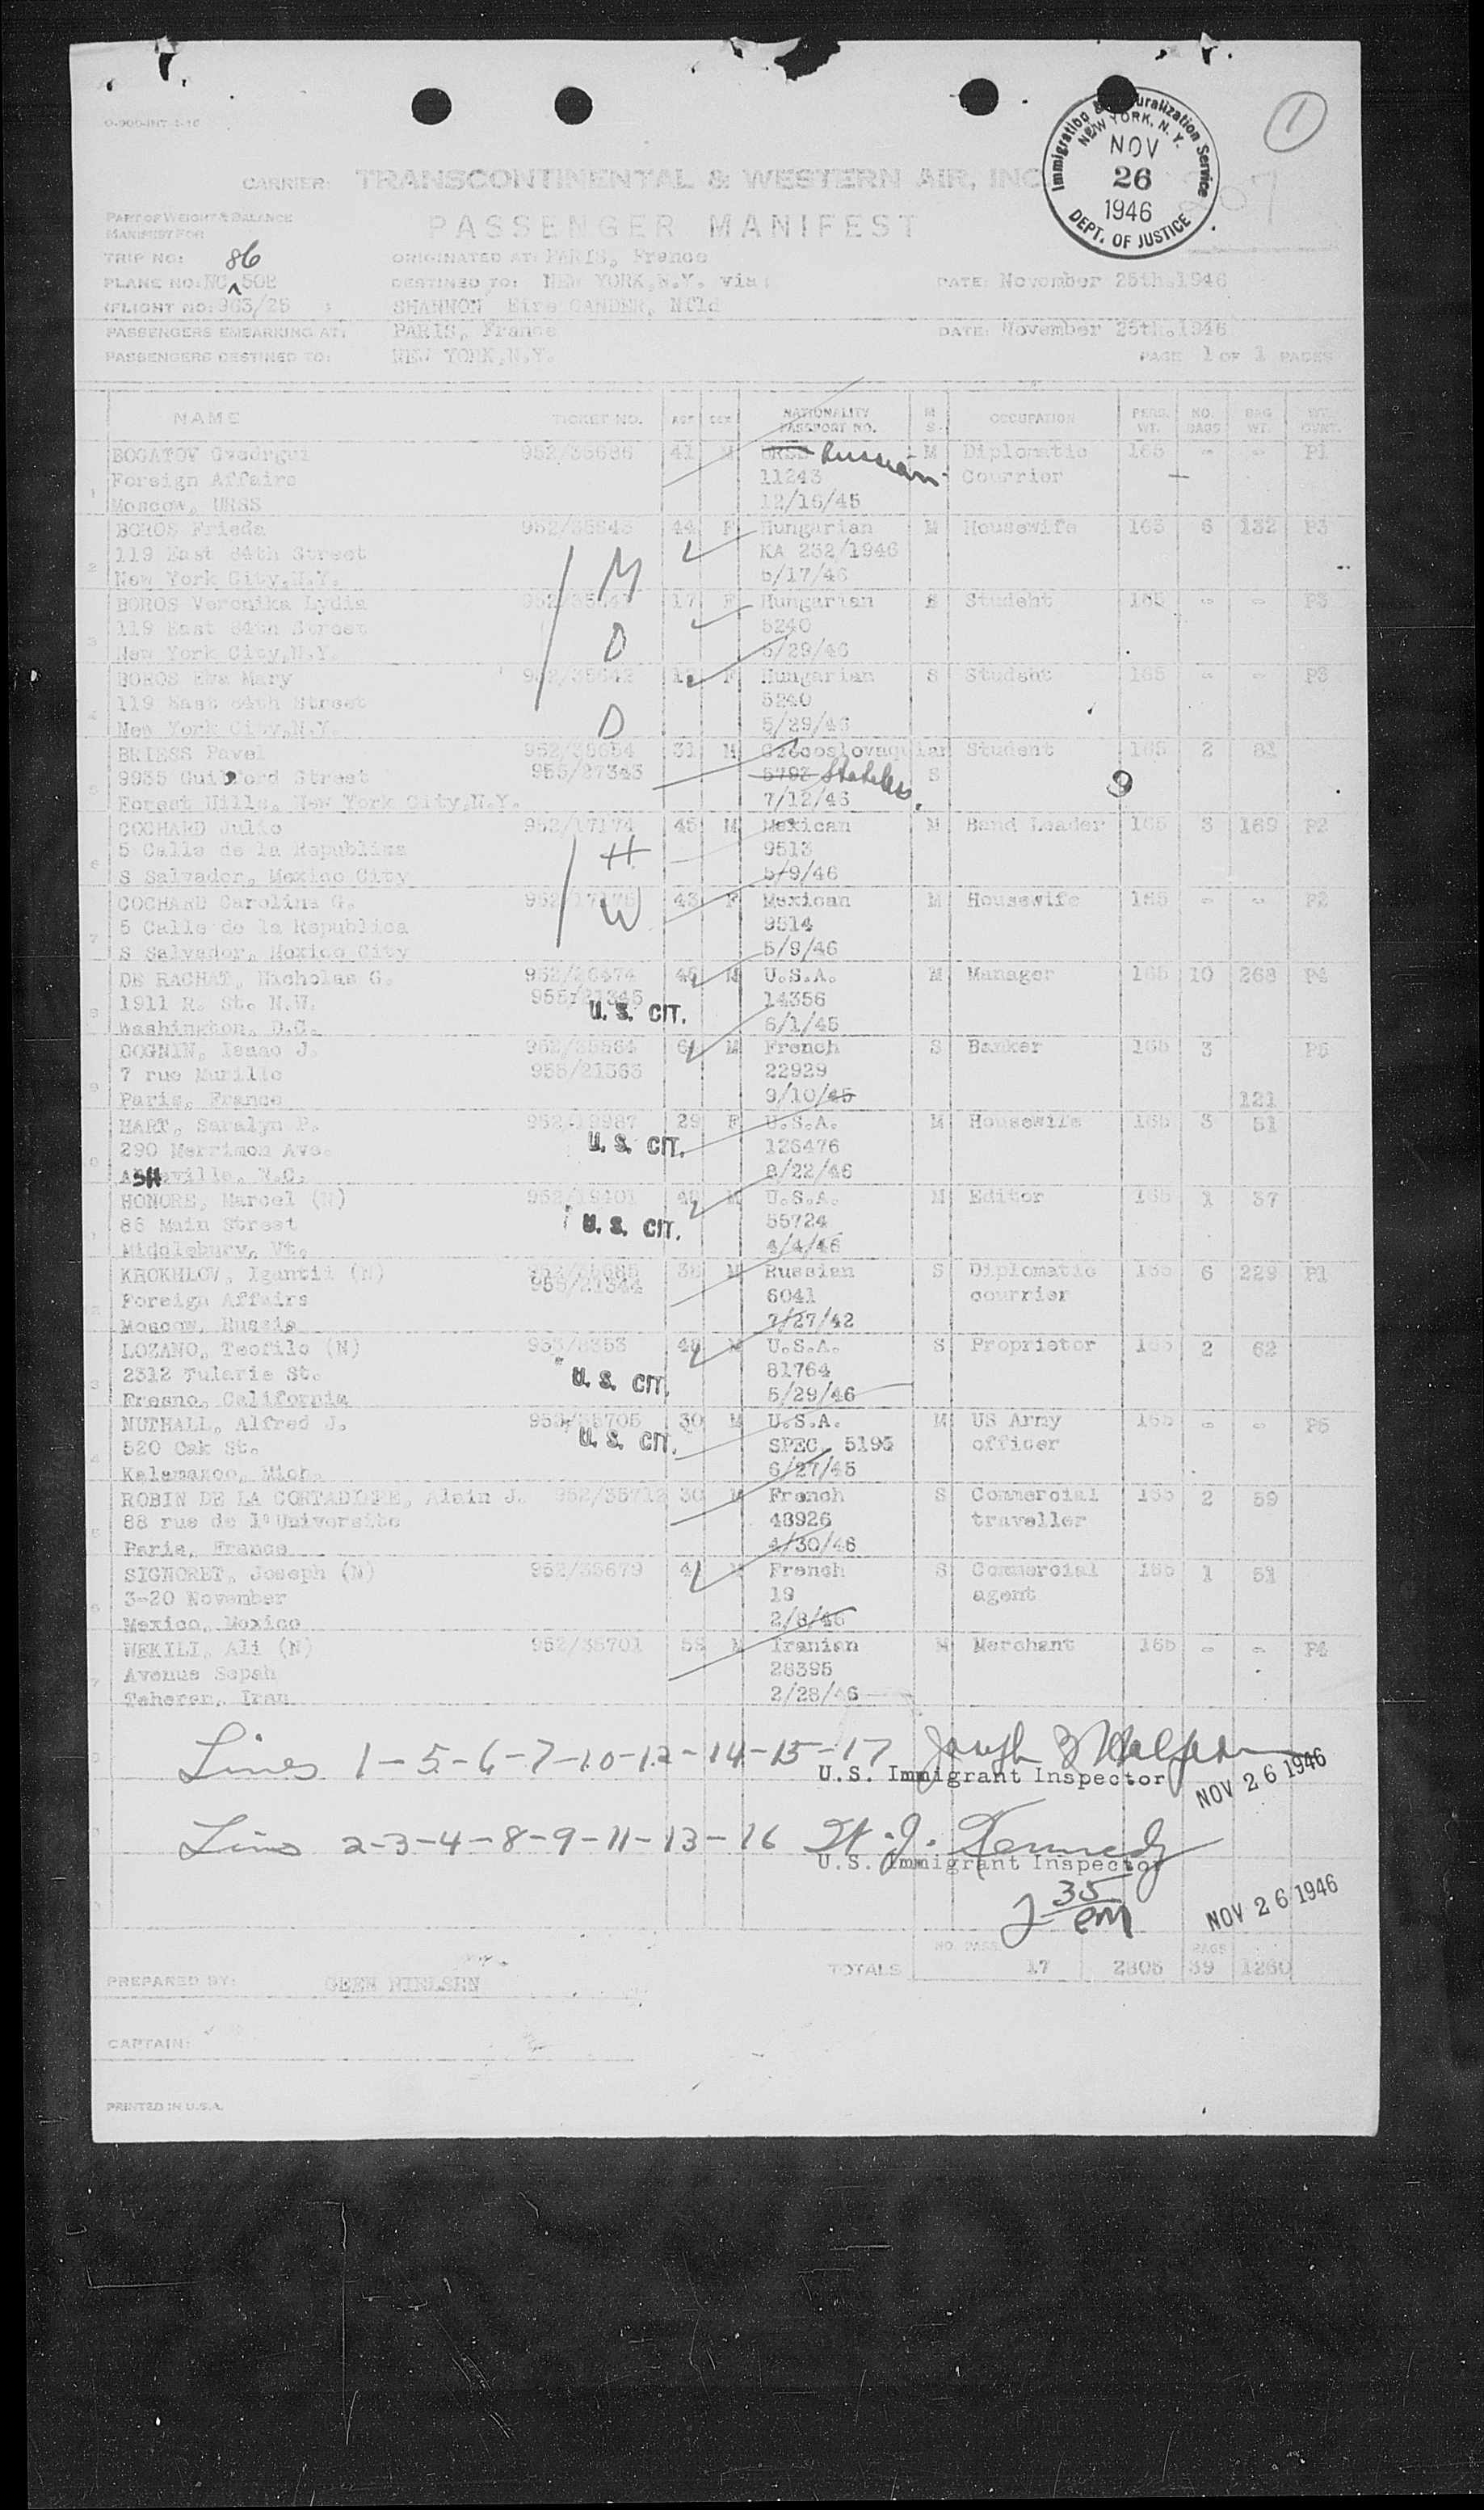 O-900-INT 4-16
1
Immigration & Naturalization Service
NEW YORK, N. Y.
NOV
26
1946
DEPT. OF JUSTICE
207
CARRIER: TRANSCONTINENTAL & WESTERN AIR, INC.
PART OF WEIGHT & BALANCE
MANIFEST FOR
PASSENGER MANIFEST
TRIP NO: 86 ORIGINATED AT: PARIS, France
PLANE NO: NC 502 DESTINED TO: NEW YORK, N.Y. via: DATE: November 25th.1946
(FLIGHT NO: 963/25 ) SHANNON Eire GANDER, Nfld
PASSENGERS EMBARKING AT: PARIS, France DATE: November 25th.1946
PASSENGERS DESTINED TO: NEW YORK, N.Y. PAGE 1 OF 1 PAGES
NAME TICKET NO. AGE SEX NATIONALITY PASSPORT NO. M S. OCCUPATION PERS. WT. NO. BAGS BAG WT. WT. CONT.
BOGATOV 952/35686 41 M URSS Russian M Diplomatic 165 - - P1
Foreign Affairs 11243 Courrier
1 Moscow, URSS 12/16/45
BOROS Frieda 952/35643 44 F Hungarian M Housewife 165 6 132 P3
119 East 84th Street M KA 232/1946
2 New York City, N.Y. 5/17/46
BOROS Veronika Lydia 952/35641 17 F Hungarian S Student 165 - - P3
119 East 84th Street D 5240
3 New York City, N.Y. 5/29/46
BOROS Eva Mary 952/35642 F Hungarian S Student 165 - - P3
119 East 84th Street 5240
4 New York City, N.Y. D 5/29/46
BRIESS Pavel 952/35654 31 M Czecoslovaquian Student 165 2 81
9935 Guilford Street 955/27343 5792 Stateless S
5 Forest Hills, New York City, N.Y. 7/12/46
COCHARD Julio 952/17174 45 M Mexican M Band Leader 165 3 169 P2
5 Calle de la Republica H 9513
6 S Salvador, Mexico City 5/9/46
COCHARD Carolina G. 952/17175 43 F Mexican M Housewife 165 - - P2
5 Calle de la Republica W 9514
7 S Salvador, Mexico City 5/9/46
DE RACHAT, Nicholas G. 952/26474 M U.S.A. M Manager 165 10 268 P4
1911 R. St. N.W. 955/21345 U. S. CIT. 14356
8 Washington, D.C. 6/1/45
COGNIN, Isaac J. 952/35564 M French S Banker 165 3 P5
7 rue Murillo 955/21363 22929
9 Paris, France 9/10/45 121
HART, Saralyn P. 952/19987 29 F U.S.A. M Housewife 165 3 51
290 Merrimon Ave. U. S. CIT. 126476
Asheville, N.C. 8/22/46
HONORE, Marcel (N) 952/19401 M U.S.A. M Editor 165 1 37
86 Main Street U. S. CIT. 55724
Middlebury, Vt. 4/4/46
KROKHLOV, Igantii (N) 36 M Russian S Diplomatic 165 6 229 P1
Foreign Affairs 955/21344 6041 courrier
Moscow, Russia 7/27/42
LOZANO, Teofilo (N) M U.S.A. S Proprietor 165 2 62
2312 Tularie St. U. S. CIT. 81764
Fresno, California 5/29/46
NUTHALL, Alfred J. 30 M U.S.A. M US Army 165 - - P5
520 Oak St. U. S. CIT. SPEC. 5195 officer
Kalamazoo, Mich. 6/27/45
ROBIN DE LA Alain J. 952/35712 30 M French S Commercial 165 2 59
88 rue de l'Universite 48926 traveller
Paris, France 4/30/46
SIGNORET, Joseph (N) 952/35679 M French S Commercial 165 1 51
3-20 November 19 agent
Mexico, Mexico 2/8/46
WEKILI, Ali (N) 952/35701 M Iranian M Merchant 165 - - P4
Avenue Sepah 28395
Teheran, Iran 2/28/46
Lines 1-5-6-7-10-12-14-15-17
U.S. Immigrant Inspector NOV 26 1946
Lines 2-3-4-8-9-11-13-16 W. J. Kennedy
U.S. Immigrant Inspector
2 35 PM NOV 26 1946
NO. PASS. BAGS
PREPARED BY: GEEN NIELSEN TOTALS 17 2805 39 1260
CAPTAIN:
PRINTED IN U.S.A.